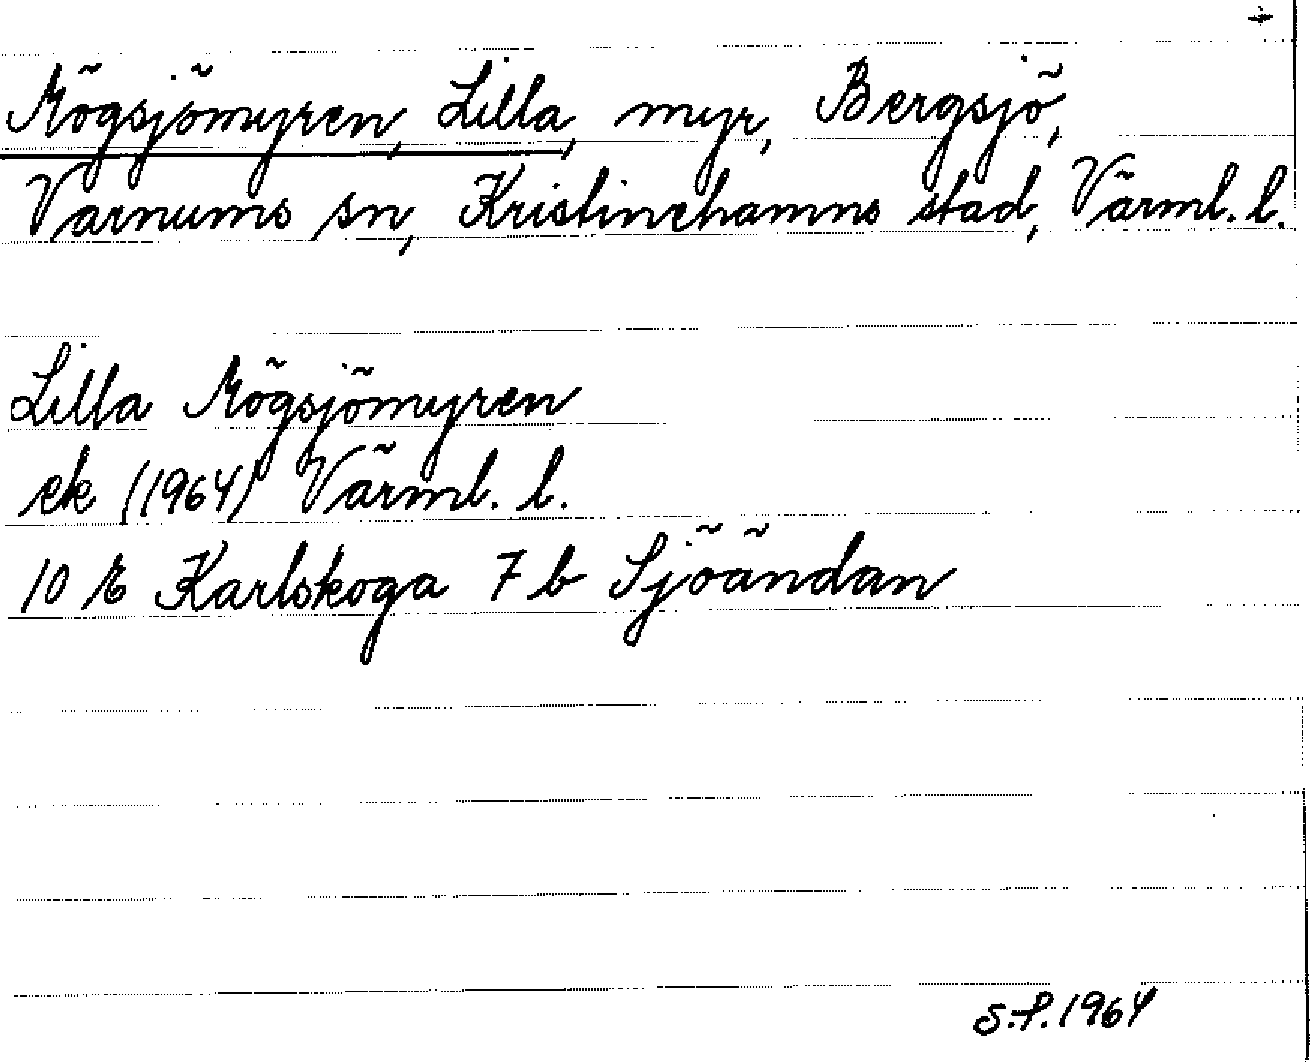 +
Mögsjömyren, Lilla, myr, Bergsjö,
Varnums sn, Kristinehamns stad, Värml. l.
Lilla Mögsjömyren
ek (1964) Värml. l.
10 E Karlskoga 7 b Sjöändan
S.P. 1964